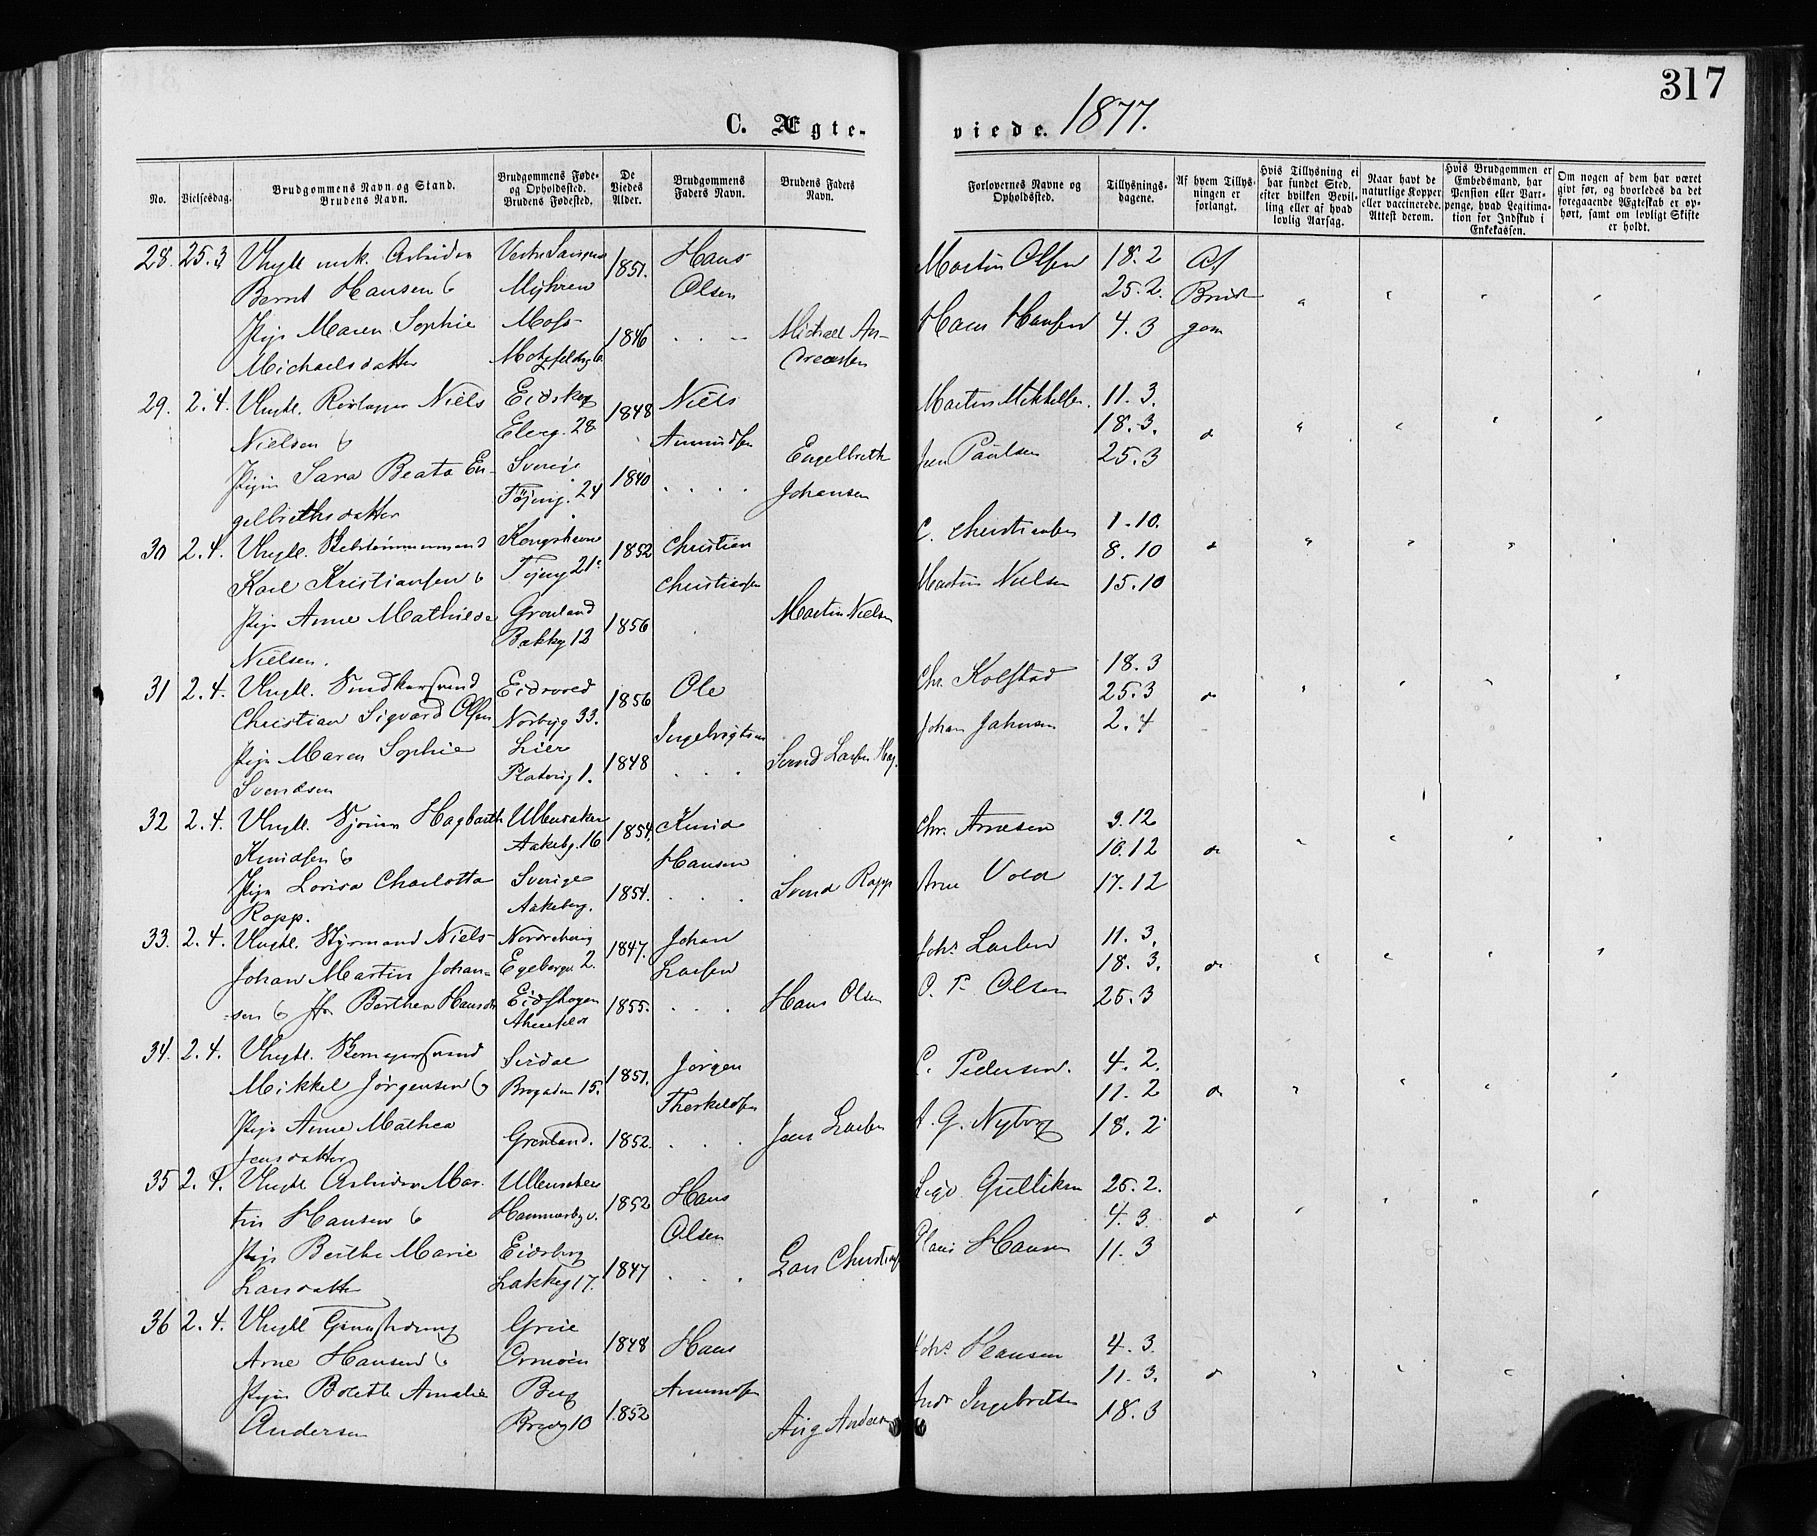 317
C. Ægte-
viede. 1877.
No.
Vielsesdag.
Brudgommens Navn og Stand.
Brudens Navn.
Brudgommens Føde-
og Opholdssted.
Brudens Fødested.
De
Viedes
Alder.
Brudgommens
Faders Navn.
Brudens Faders
Navn.
Forlovernes Navne og
Opholdssted.
Tillysnings-
dagene.
Af hvem Tillys-
ningen er
forlangt.
Hvis Tillysning ei
har fundet Sted,
efter hvilken Bevil-
ling eller af hvad
lovlig Aarsag.
Naar havt de
naturlige Kopper
eller vaccinerede.
Attest derom.
Hvis Brudgommen er
Embedsmand, har
Pension eller Vart-
penge, hvad Legitima-
tion for Indskud i
Enkekassen.
Om nogen af dem har været
givt før, og hvorledes da det
foregaaende Ægteskab er op-
hørt, samt om lovligt Skifte
er holdt.
28. 25.3 Ungk. Arbeider 1851. Hans Martin Olsen 18.2 Af
Bernt Hansen Myhren Olsen 25.2. Brud
Pige Maren Sophie Moss 1846 Michael An- Hans Hansen 4.3 gom
Michaelsdatter dreassen
29. 2.4. Ungk. Niels Eidskog 1848 Niels Martin Mikkelsen 11.3.
Nielsen Eleng. 28 Amundsen 18.3.
Pigen Sara Beata En- Sverige 1840 Engelbreth Jan Paulsen 25.3
gelbrethsdatter Tøieng. 24 Johansen
30 2.4. Ungk. 1852 Christian C. Christiansen 1.10.
Karl Kristiansen Tøieng 21 Christiansen 8.10
Pige Anne Mathilde Grønland 1856 Martin Nielsen Martin Nielsen 15.10
Nielsen. Bakkeg 12
31 2.4. Ungk. Eidsvold 1856 Ole Chr. Kolstad 18.3
Christian Sigvard Olsen Norbyg 33. 25.3
Pige Maren Sophie Lier 1848 Svend Larsen Johan Johnsen 2.4
Svendsen Platoug 1.
32 2.4. Ungk. Hagbarth Ullensaker 1854. Knud Chr. Arnesen 3.12
Knudsen Aakebg. 16 Hansen 10.12
Pige Lovisa Charlotta Sverige 1854. Svend Rapp Arne Vold 17.12
Rapp. Aakeberg.
33. 2.4. Ungk. Styrmand Niels 1847. Johan Johs Larsen 11.3.
Johan Martin Johan- Egebergv. 2. Larsen 18.3.
sen Berthea Hansd Eidskogen 1855. Hans Olsen O. P. Olsen 25.3
34. 2.4. Ungk. Skomagersvend Sirdal 1851. Jørgen C. Pedersen. 4.2.
Mikkel Jørgensen Brogaden 15. Therkelsen 11.2
Pige Anne Mathea Grønland. 1852. Jens Larsen A. G. Nyborg 18.2
Jensdatter
35 2.4. Ungk Arbeider Mar- Ullensaker 1852 Hans Gulliksen 25.2.
tin Hansen Hammersbg. Olsen 4.3.
Pige Berthe Marie Eidsberg 1847 Lars Hansen 11.3
Larsdatter Lakkeg 17.
36 2.4. Ungk Grue 1848 Hans Johs Hansen 4.3.
Arne Hansen Ormøen Amundsen 11.3.
Pigen Bolette Amalie Berg 1852 Aug Andersen Andr Ingebretsen 18.3
Andersen 10